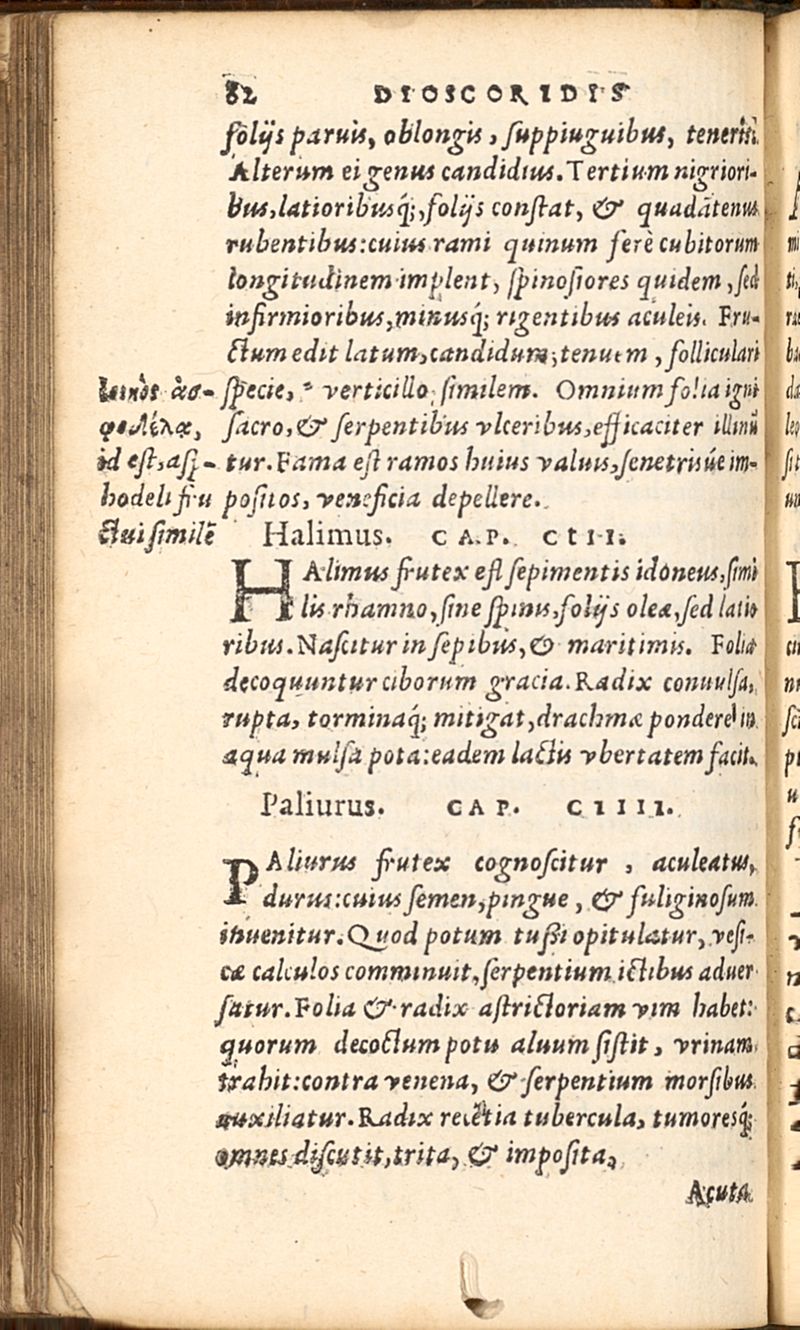 82 DIOSCORIDIS
folijs paruis, oblongis, suppinguibus, teneris.
Alterum ei genus candidius. Tertium nigriori-
bus, latioribusq́;, folijs constat, & quadātenus
rubentibus: cuius rami quinum ferè cubitorum
longitudinem implent, spinosiores quidem, sed
infirmioribus, minusq́; rigentibus aculeis. Fru-
ctum edit latum, candidum, tenuem, folliculari
specie, * verticillo similem. Omnium folia igni
sacro, & serpentibus vlceribus, efficaciter illinū
tur. Fama est ramos huius valuis, fenetrisúe im-
positos, veneficia depellere.
id est, asp-
hodeli fru
ctui similē
Halimus. CAP. CIII.
HAlimus frutex est sepimentis idoneus, simi
lis rhamno, sine spinis, folijs oleæ, sed latio
ribus. Nascitur in sepibus, & maritimis. Folia
decoquuntur ciborum gracia. Radix conuulsa,
rupta, torminaq́; mitigat, drachmæ pondere in
aqua mulsa pota: eadem lactis vbertatem facit.
Paliurus. CAP. CIIII.
PAliurus frutex cognoscitur, aculeatus,
durus: cuius semen, pingue, & fuliginosum
inuenitur. Quod potum tussi opitulatur, vesi-
cæ calculos comminuit, serpentium ictibus aduer
satur. Folia & radix astrictoriam vim habet:
quorum decoctum potu aluum sistit, vrinam
trahit: contra venena, & serpentium morsibus
auxiliatur. Radix recētia tubercula, tumoresq́;
omnes discutit, trita, & imposita,
Acuta